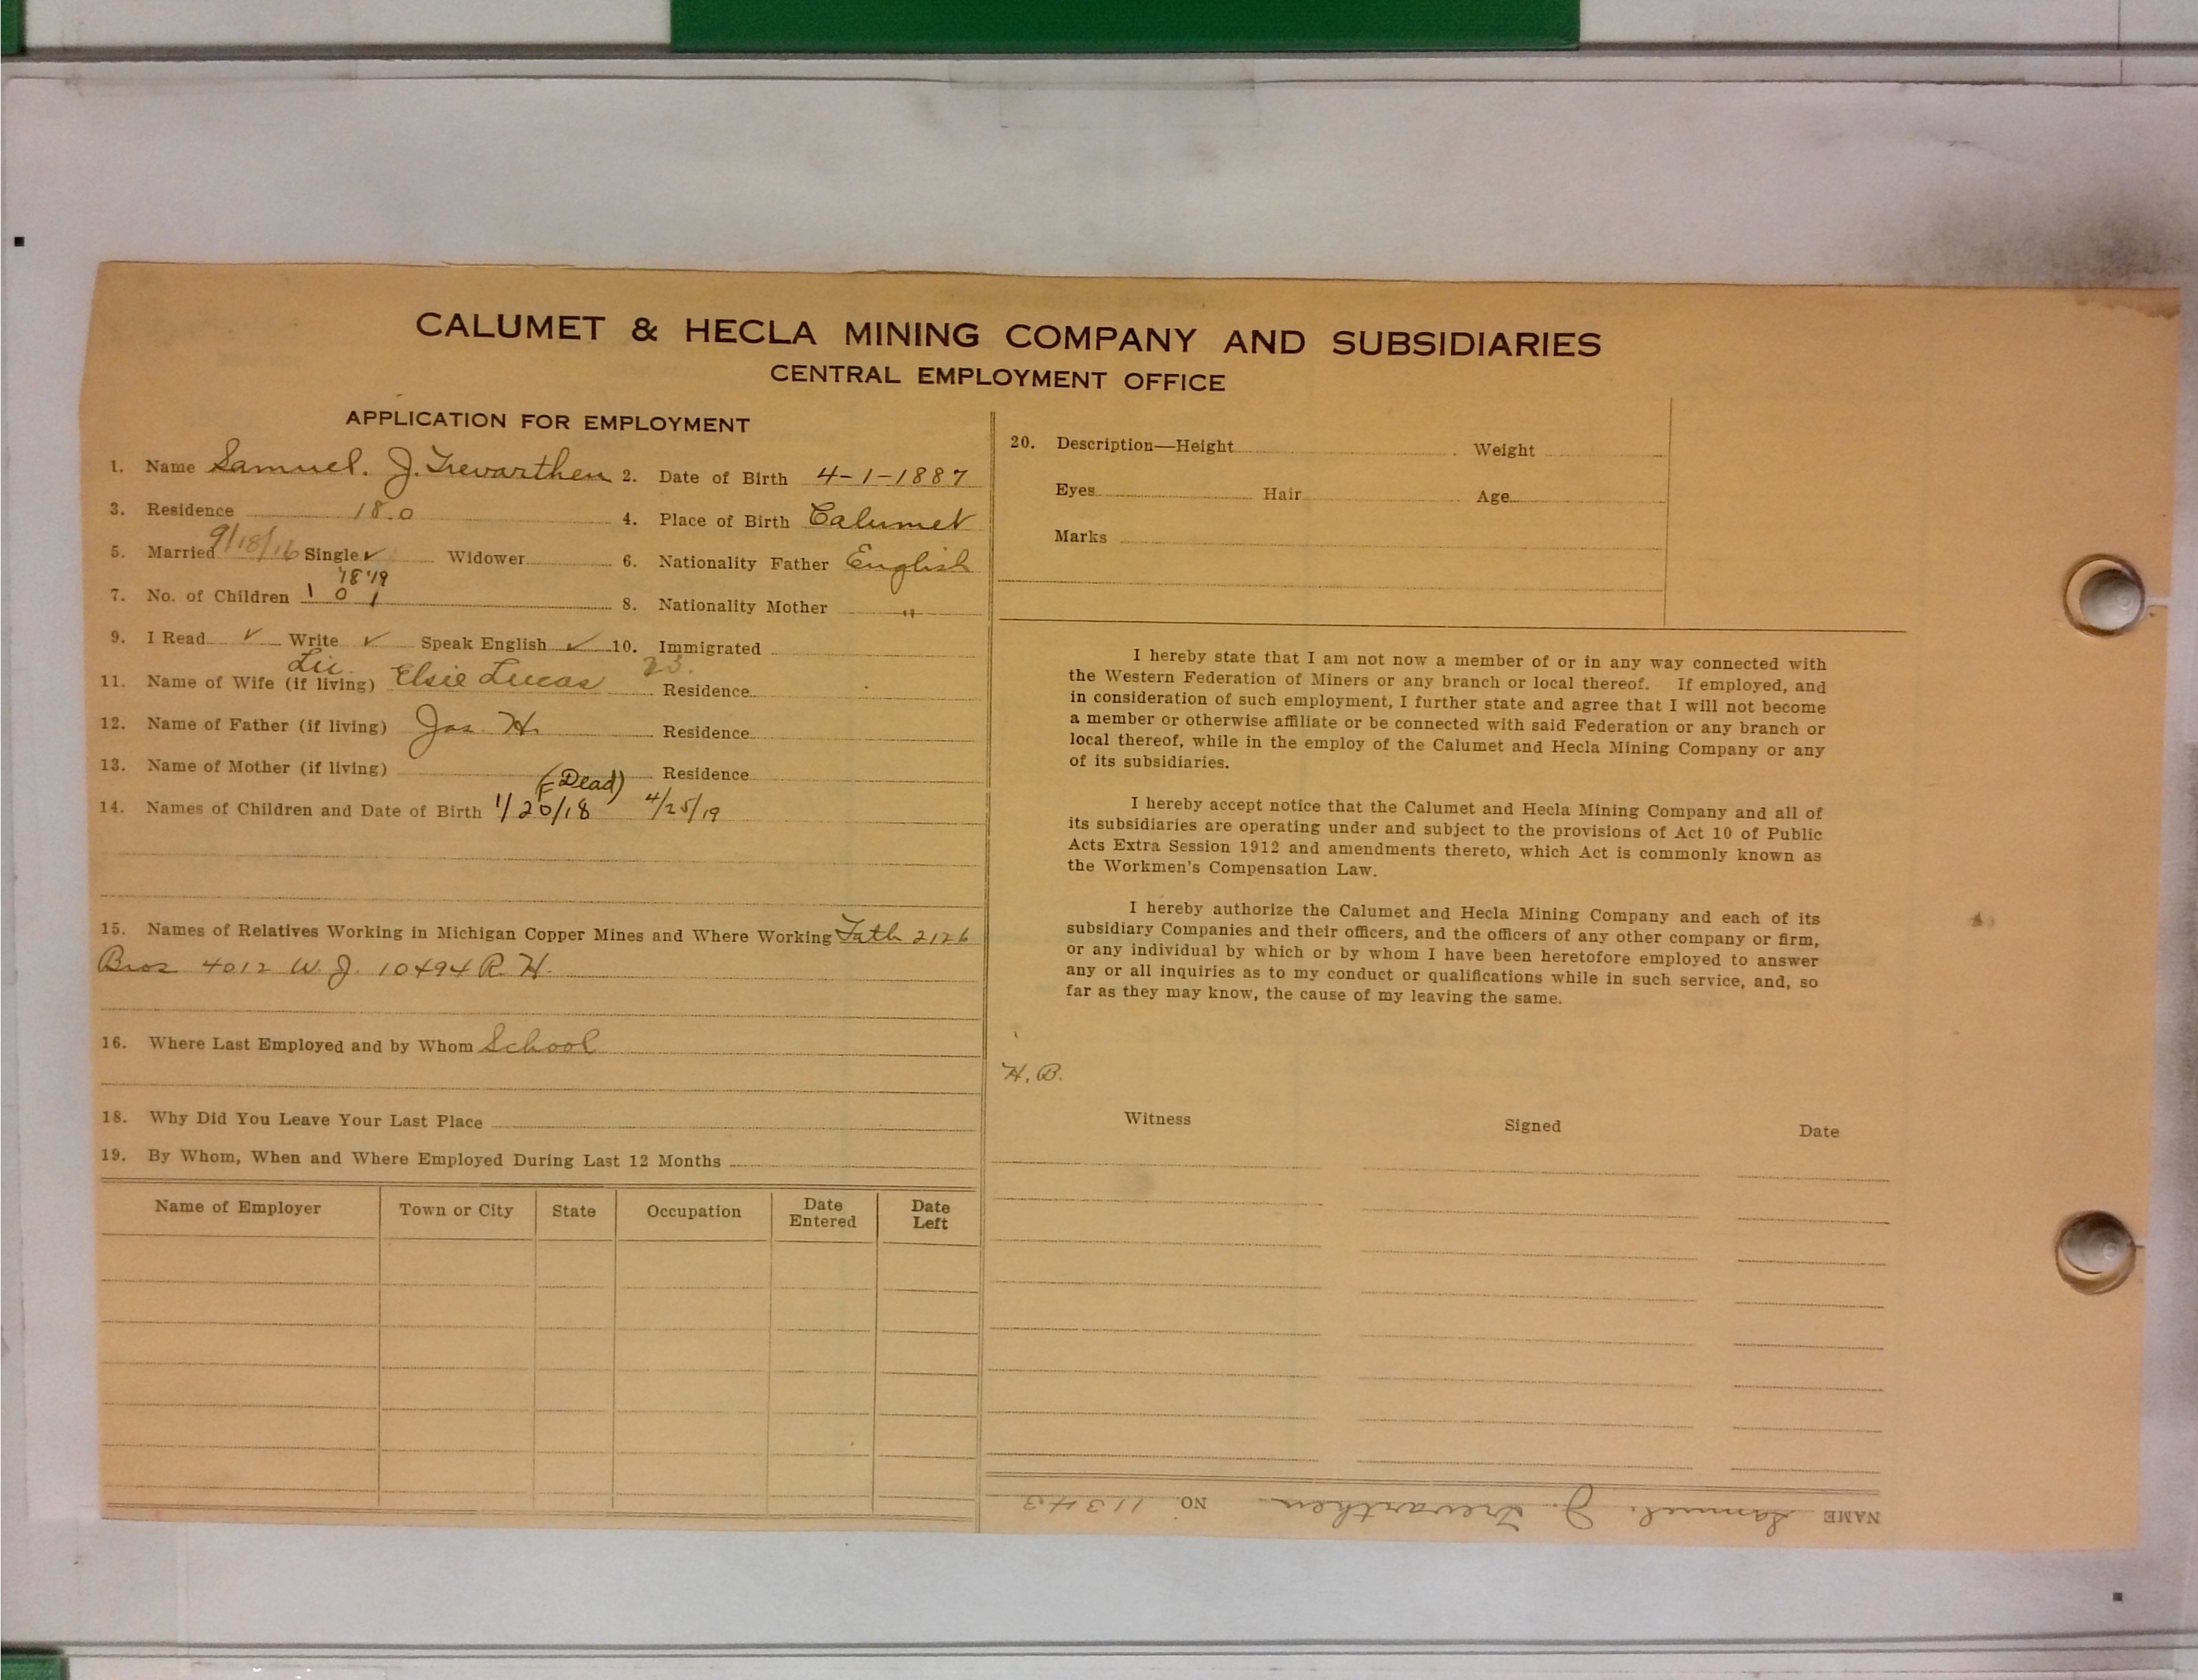 CALUMET & HECLA MINING COMPANY AND SUBSIDIARIES
CENTRAL EMPLOYMENT OFFICE
APPLICATION FOR EMPLOYMENT
1. Name Samuel. J. Trevarthen 2. Date of Birth 4-1-1887
3. Residence 18.0 4. Place of Birth Calumet
5. Married 9/18/16 Single ✓ Widower 6. Nationality Father English
'18 '19
7. No. of Children 1 0 1 8. Nationality Mother "
9. I Read ✓ Write ✓ Speak English ✓ 10. Immigrated
Lic. 23.
11. Name of Wife (if living) Elsie Lucas Residence
12. Name of Father (if living) Jas. H. Residence
13. Name of Mother (if living) Residence
(Dead)
14. Names of Children and Date of Birth 1/20/18 4/25/19
15. Names of Relatives Working in Michigan Copper Mines and Where Working Fath 2126
Bros 4012 W. J. 10494 R. H.
16. Where Last Employed and by Whom School
18. Why Did You Leave Your Last Place
19. By Whom, When and Where Employed During Last 12 Months
Name of Employer Town or City State Occupation Date Entered Date Left
20. Description—Height Weight
Eyes Hair Age
Marks
I hereby state that I am not now a member of or in any way connected with
the Western Federation of Miners or any branch or local thereof. If employed, and
in consideration of such employment, I further state and agree that I will not become
a member or otherwise affiliate or be connected with said Federation or any branch or
local thereof, while in the employ of the Calumet and Hecla Mining Company or any
of its subsidiaries.
I hereby accept notice that the Calumet and Hecla Mining Company and all of
its subsidiaries are operating under and subject to the provisions of Act 10 of Public
Acts Extra Session 1912 and amendments thereto, which Act is commonly known as
the Workmen's Compensation Law.
I hereby authorize the Calumet and Hecla Mining Company and each of its
subsidiary Companies and their officers, and the officers of any other company or firm,
or any individual by which or by whom I have been heretofore employed to answer
any or all inquiries as to my conduct or qualifications while in such service, and, so
far as they may know, the cause of my leaving the same.
H. B.
Witness Signed Date
NAME Samuel. J. Trevarthen NO. 11343